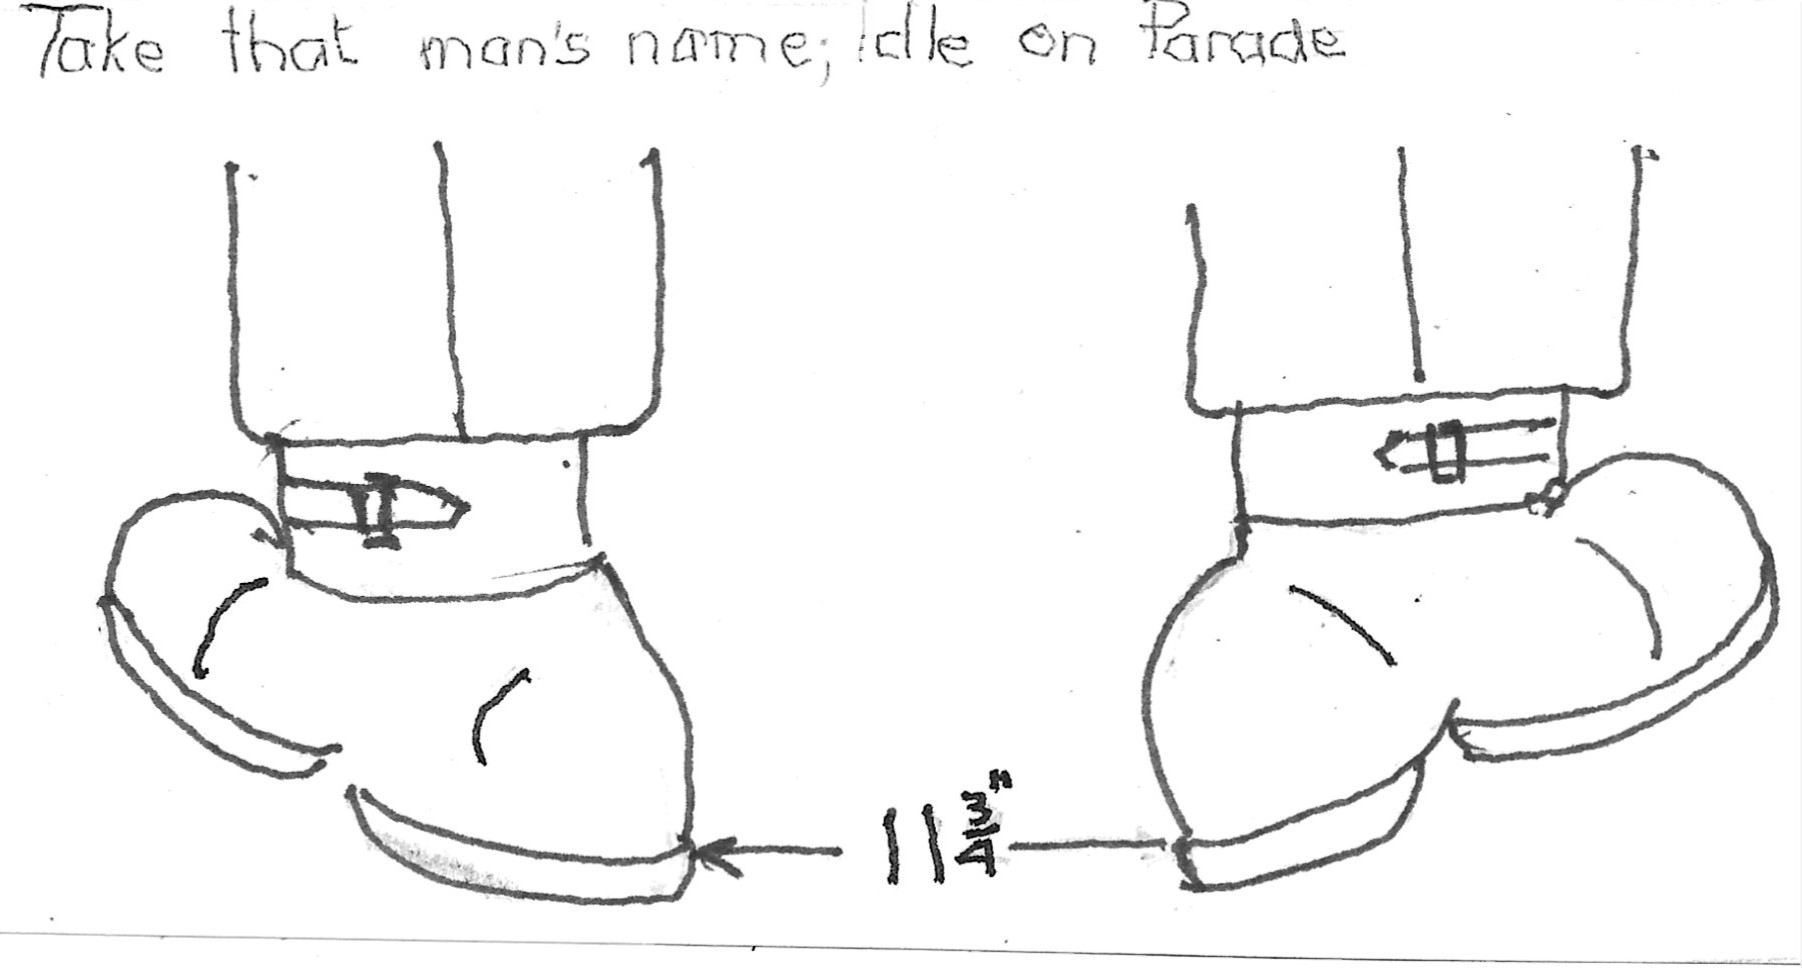 Take that man's name; Idle on Parade
11 3/4"